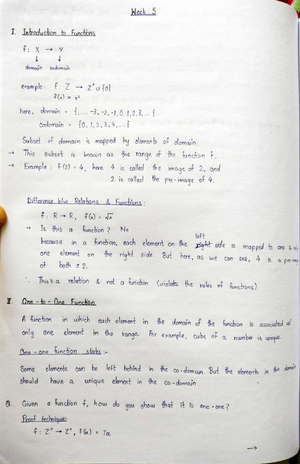 Week 5
I. Introduction to Functions
f: X → Y
↓ ↓
domain codomain
example: f: Z → Z⁺ ∪ {0}
f(x) = x²
here, domain = {....-3,-2,-1,0,1,2,3,...}
codomain = {0,1,2,3,4,...}
Subset of domain is mapped by elements of domain.
→ This subset is known as the range of the function f.
→ Example: f(2) = 4, here 4 is called the image of 2, and
2 is called the pre-image of 4.
Difference b/w Relations & Functions:
f: R → R, f(x) = √x
→ Is this a function? No
because in a function, each element on the left side is mapped to one &
one element on the right side. But here, as we can see, 4 is a pre-
of both ± 2.
∴ This is a relation & not a function (violates the rules of functions)
II. One-to-One Function
A function in which each element in the domain of the function is associated w/
only one element in the range. For example, cube of a number is unique.
One-one function states:-
Some elements can be left behind in the co-domain. But the elements in the domain
should have a unique element in the co-domain.
Q. Given a function f, how do you show that it is one-one?
Proof technique:
f: Z⁺ → Z⁺, f(x) = 7x
→